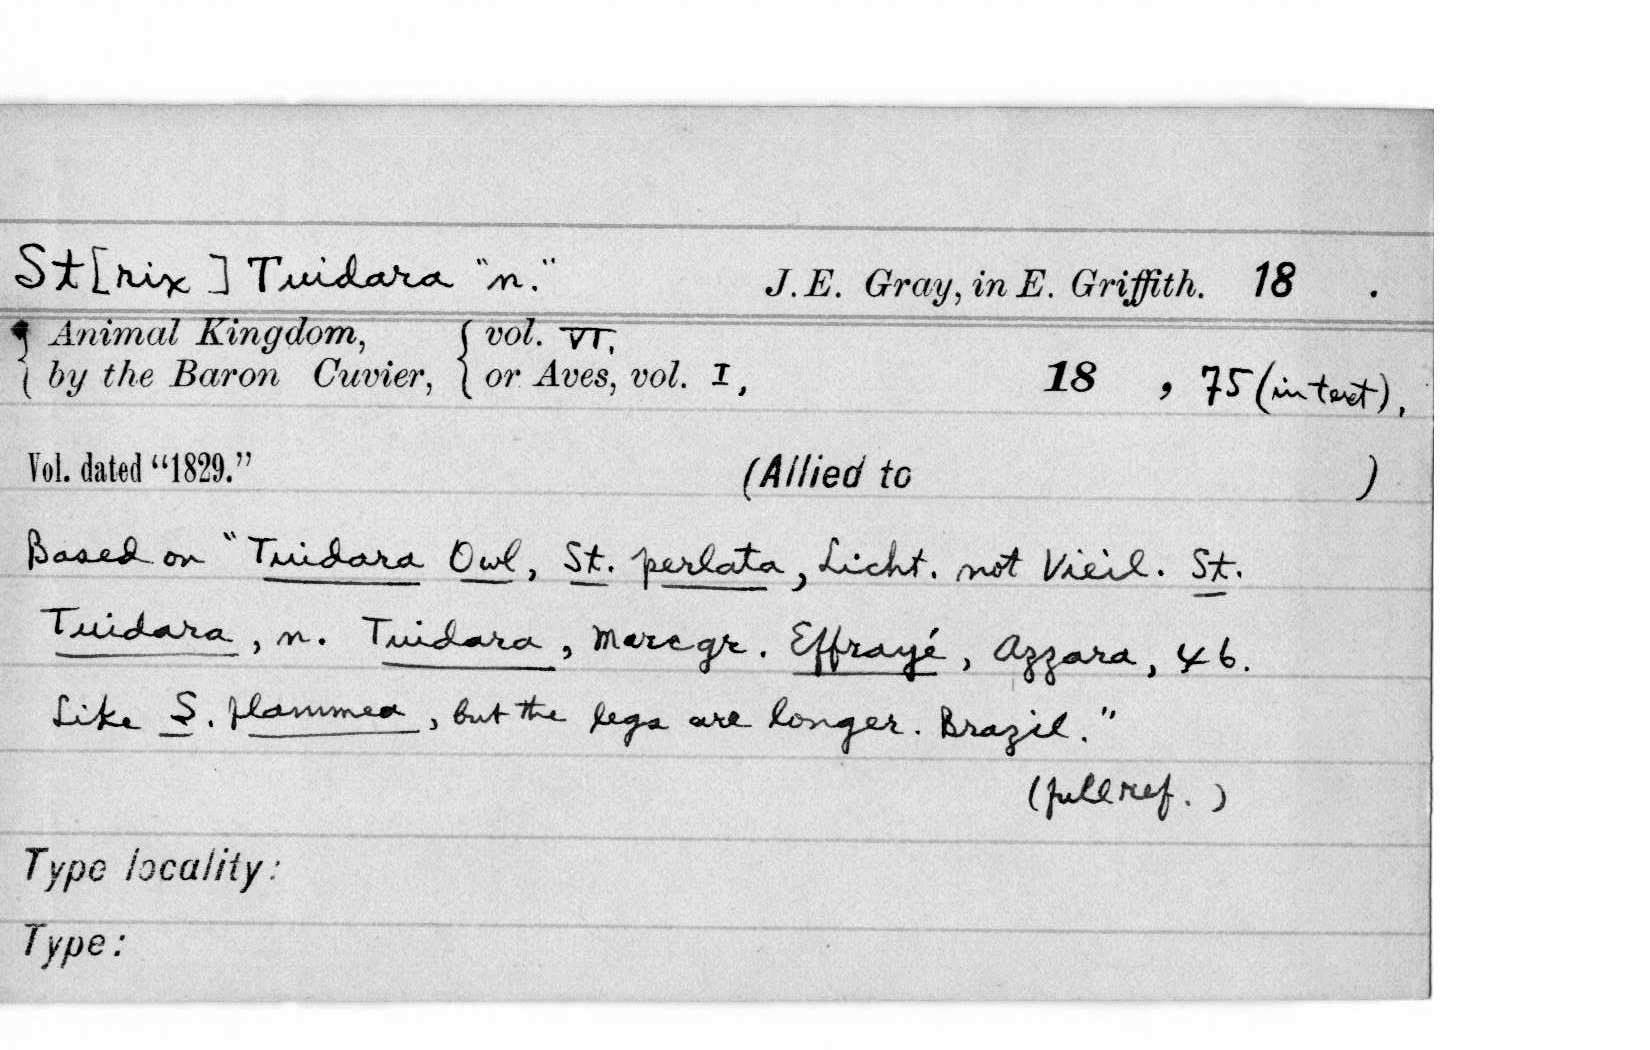 St[rix] Tuidara "n." J.E. Gray, in E. Griffith. 18 .
{ Animal Kingdom, { vol. VI,
{ by the Baron Cuvier, { or Aves, vol. I, 18 , 75 (in text),
Vol. dated "1829." (Allied to )
Based on "Tuidara Owl, St. perlata, Licht. not Vieil. St.
Tuidara, n. Tuidara, Marcgr. Effrayé, Azzara, 46.
Like S. flammea, but the legs are longer. Brazil."
(full ref. )
Type locality:
Type: